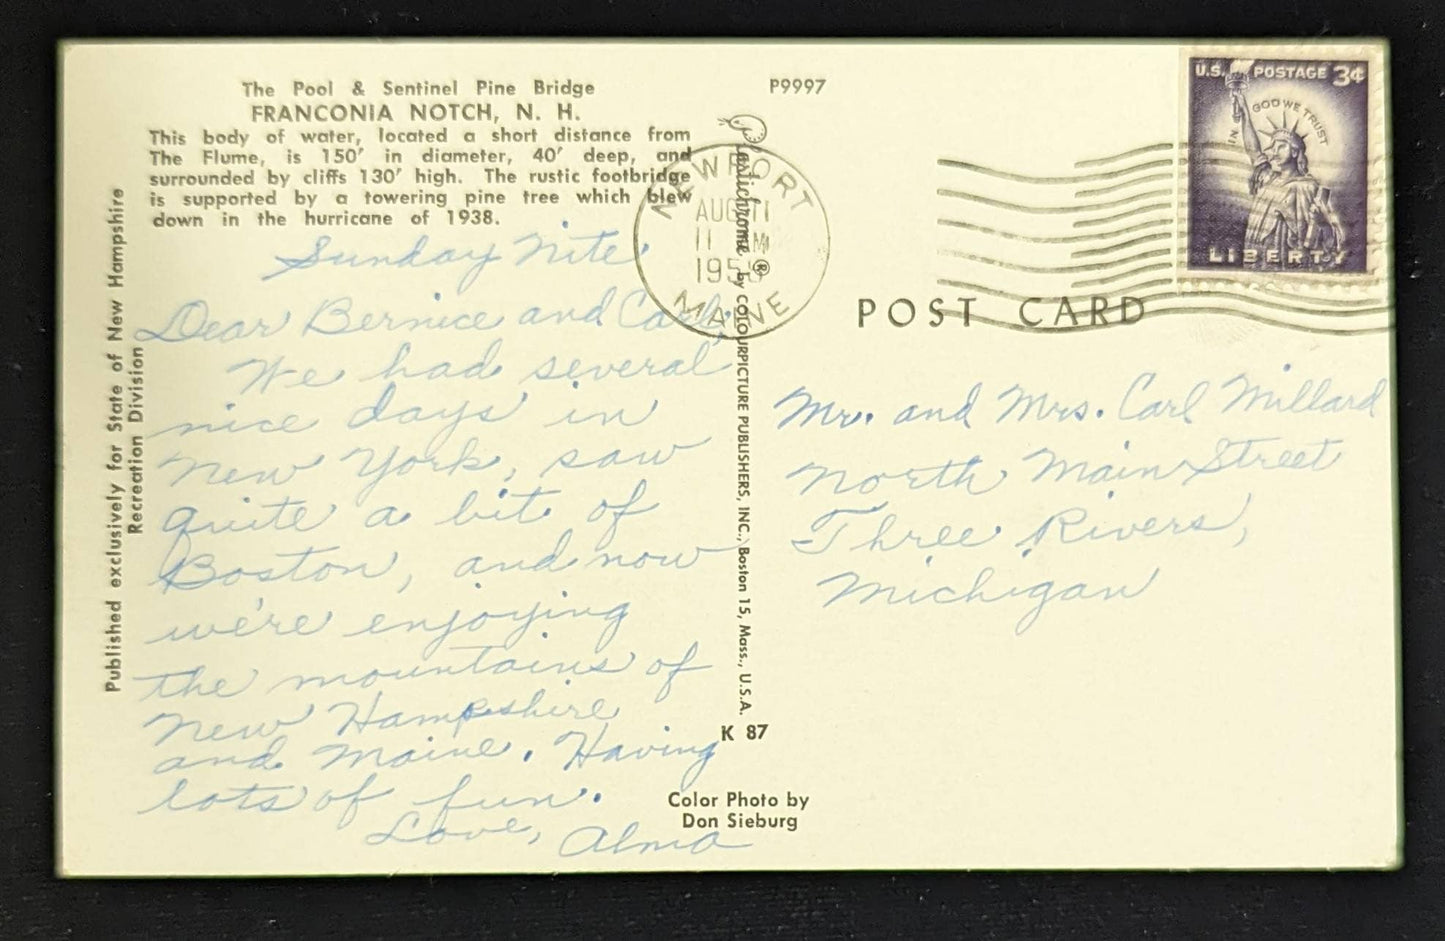 The Pool & Sentinel Pine Bridge
FRANCONIA NOTCH, N. H.
This body of water, located a short distance from
The Flume, is 150' in diameter, 40' deep, and
surrounded by cliffs 130' high. The rustic footbridge
is supported by a towering pine tree which blew
down in the hurricane of 1938.
Published exclusively for State of New Hampshire
Recreation Division
Sunday Nite.
Dear Bernice and Carl,
We had several
nice days in
New York, saw
quite a bit of
Boston, and now
we're enjoying
the mountains of
New Hampshire
and Maine. Having
lots of fun.
Love, Alma
P9997
Plastichrome ® by COLOURPICTURE PUBLISHERS, INC., Boston 15, Mass., U.S.A.
K 87
Color Photo by
Don Sieburg
NEWPORT
AUG 11
11 M
MAINE
U.S. POSTAGE 3¢
IN GOD WE TRUST
LIBERTY
POST CARD
Mr. and Mrs. Carl Millard
North Main Street
Three Rivers,
Michigan